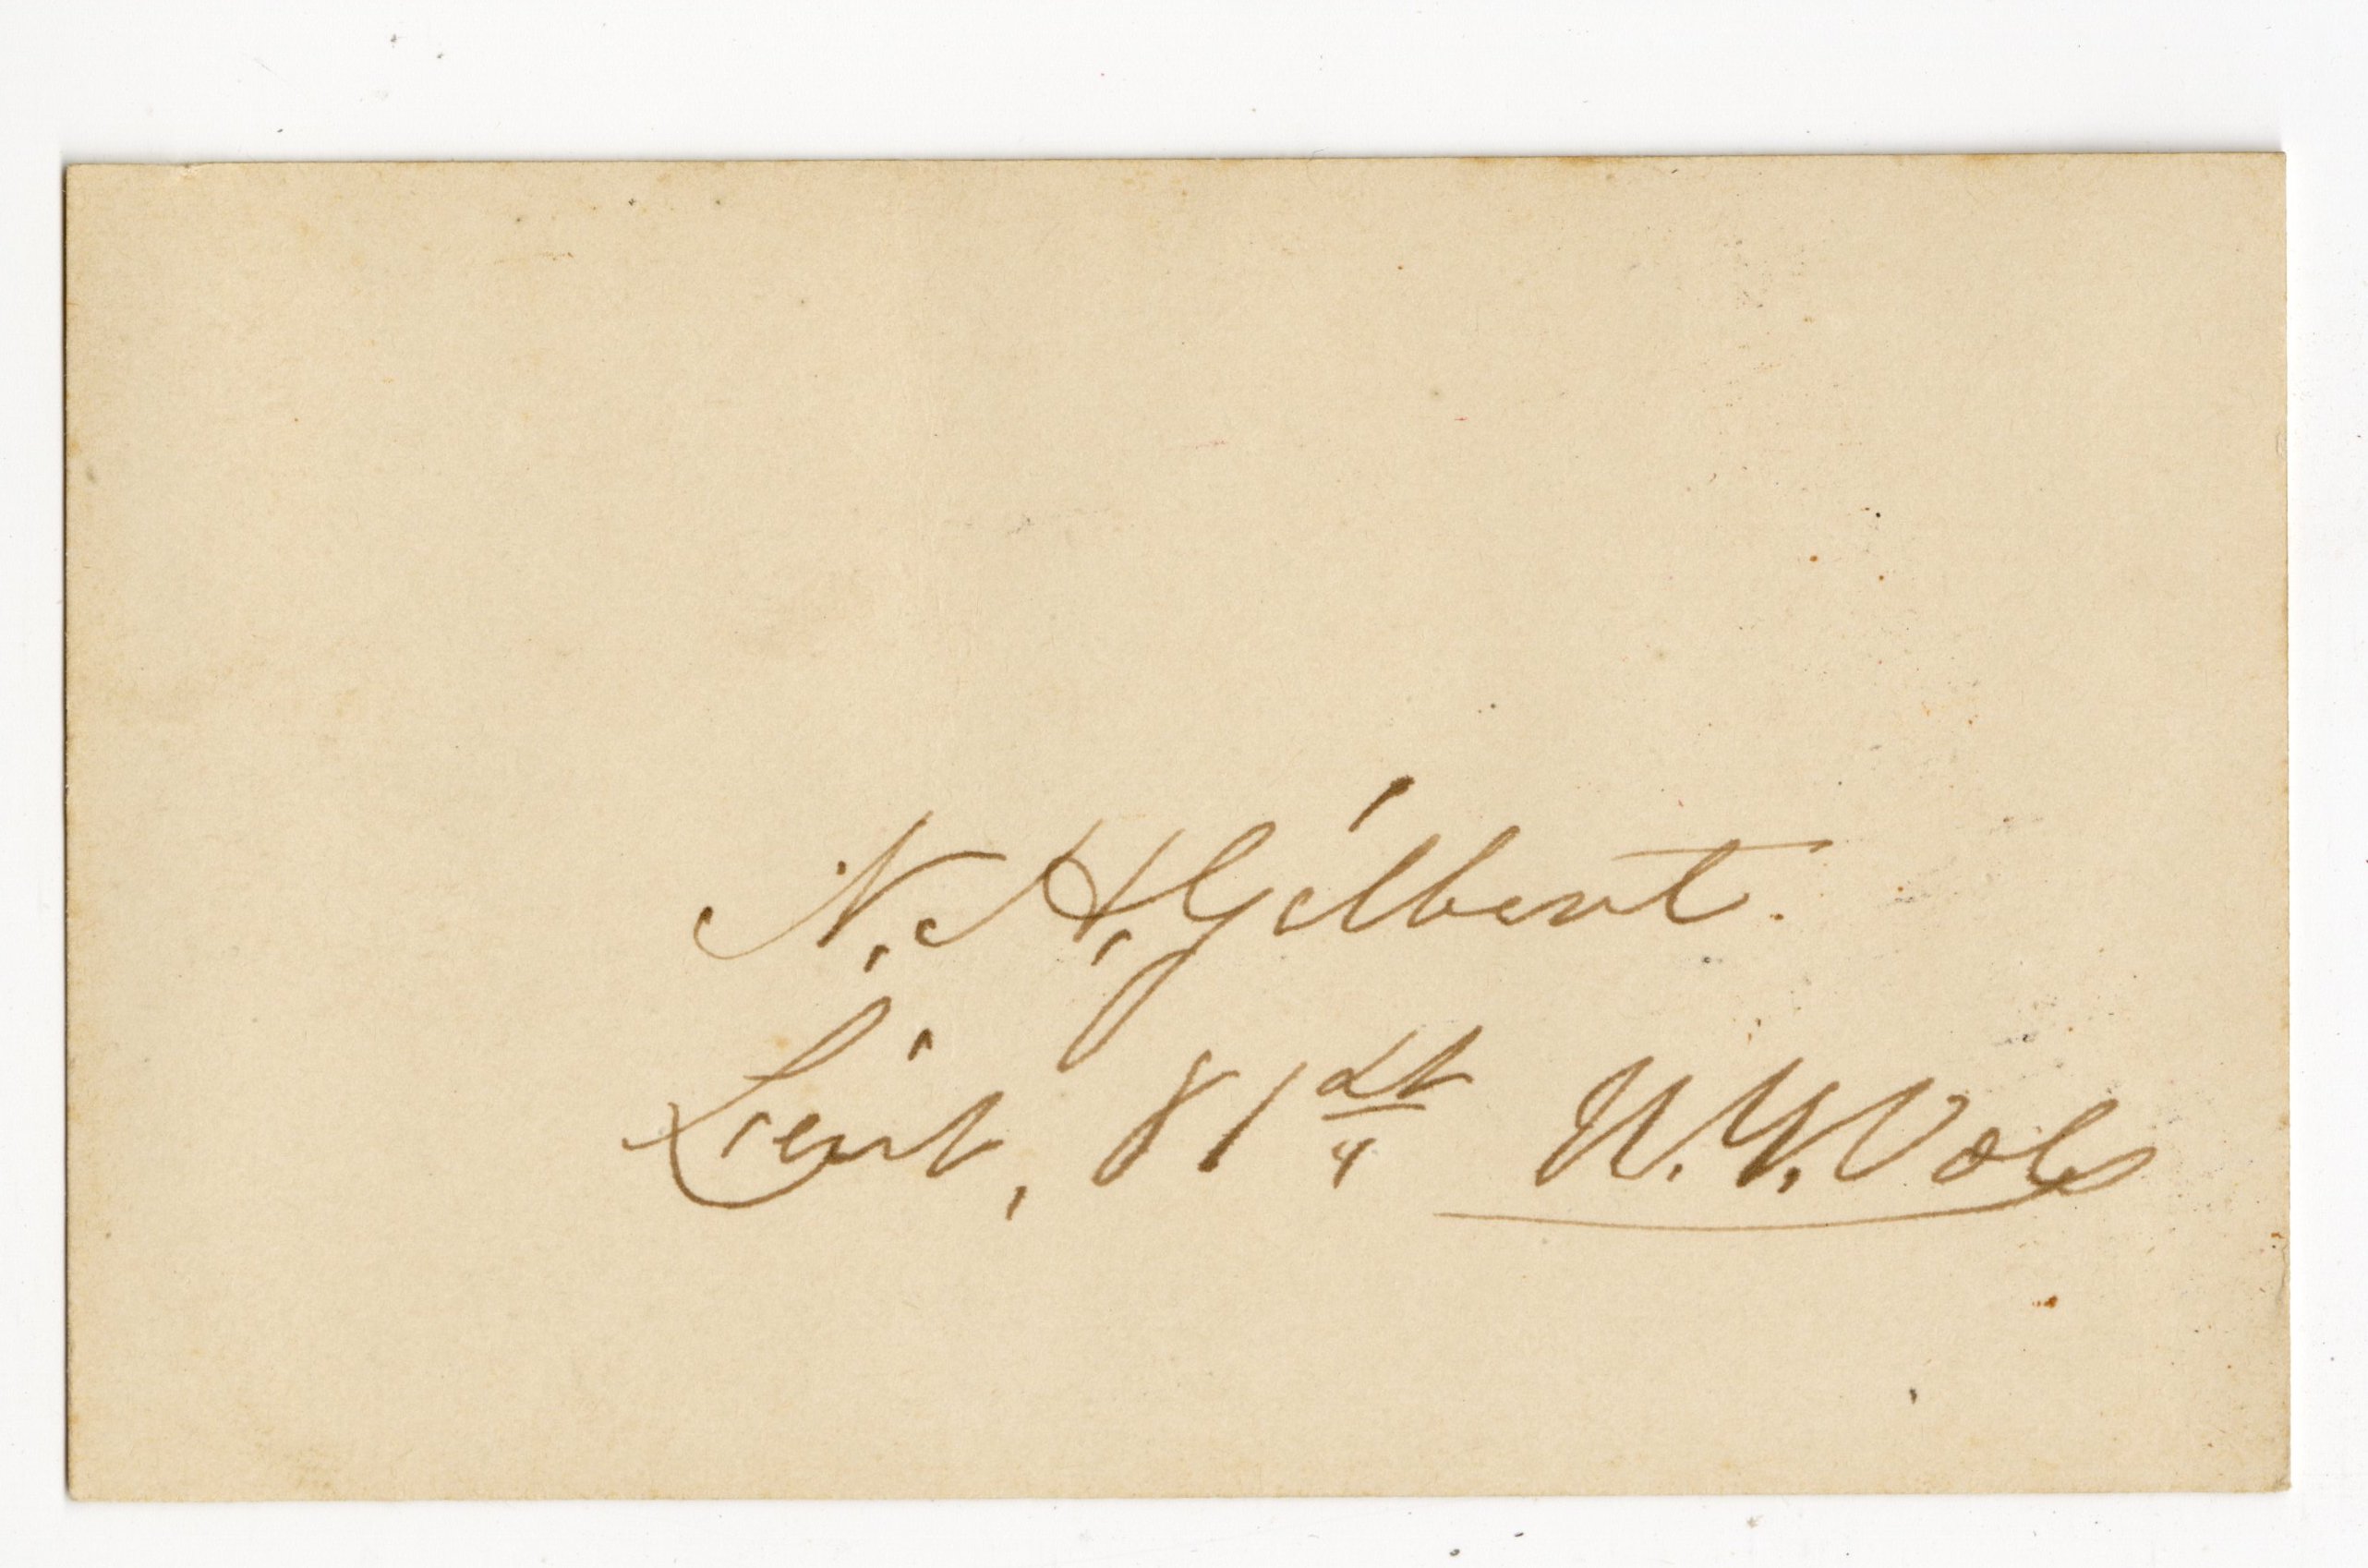 N. H. Gilbert.
Lieut, 81st N.Y. Vols